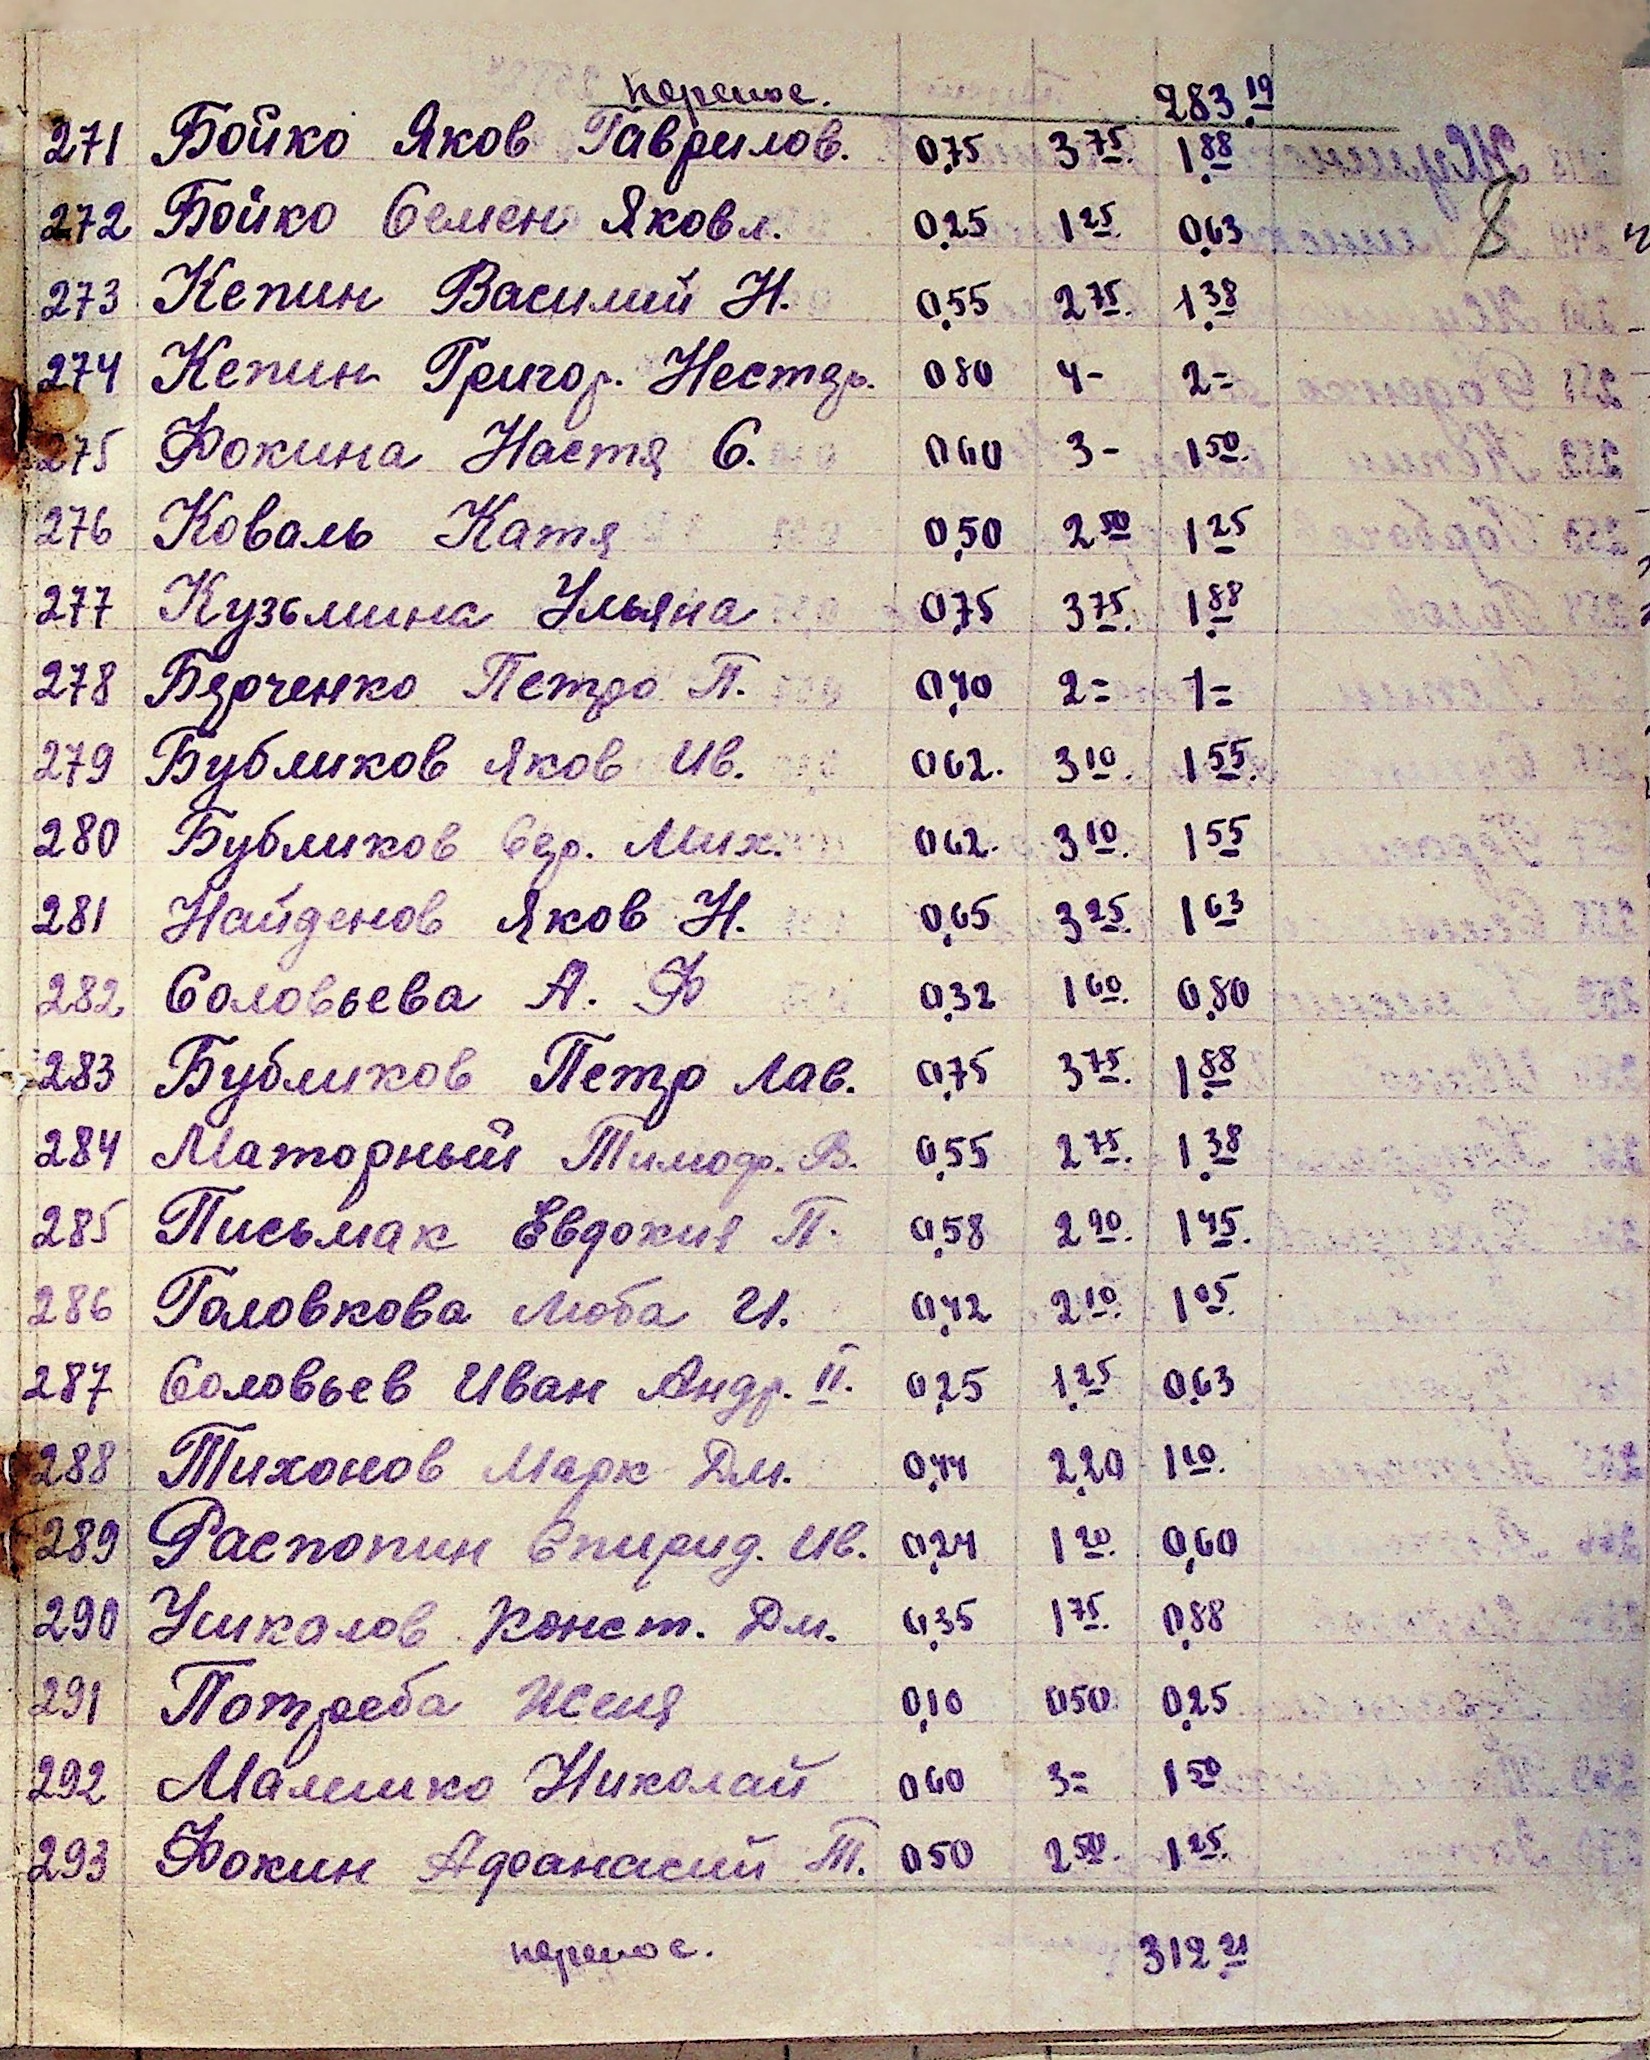 перенос. 283.19
271 Бойко Яков Гаврилов. 0,75 3 75. 1.88
272 Бойко Семен Яковл. 0,25 1 25. 0,63
273 Кепин Василий Н. 0,55 2 75. 1.38
274 Кепин Григор. Нестер. 0 80 4- 2=
275 Фокина Настя С. 0 60 3- 1 50.
276 Коваль Катя 0,50 2 50 1 25
277 Кузьмина Ульяна 0,75 3 75. 1.88
278 Берченко Петро П. 0,40 2= 1=
279 Бубликов Яков Ив. 0 62. 3 10. 1 55.
280 Бубликов Сер. Мих. 0 62. 3 10. 1 55
281 Найденов Яков Н. 0,65 3 25. 1 63
282 Соловьева А. Ф 0,32 1 60. 0,80
283 Бубликов Петр Лав. 0,75 3 75. 1.88
284 Маторный Тимоф. В. 0,55 2 75. 1.38
285 Письмак Евдокия П. 0,58 2 90. 1 45.
286 Головкова Люба И. 0,42 2 10. 1 05.
287 Соловьев Иван Андр. II. 0,25 1.25 0,63
288 Тихонов Марк Дм. 0,44 2,20 1 10.
289 Распопин Спирид. Ив. 0,24 1 20. 0,60
290 Ушкалов Конст. Дм. 0,35 1 75. 0,88
291 Потреба Женя 0,10 0 50 0,25
292 Малишко Николай 0 60 3= 1 50
293 Фокин Афанасий Т. 0 50 2 50. 1 25.
перенос. 312.21